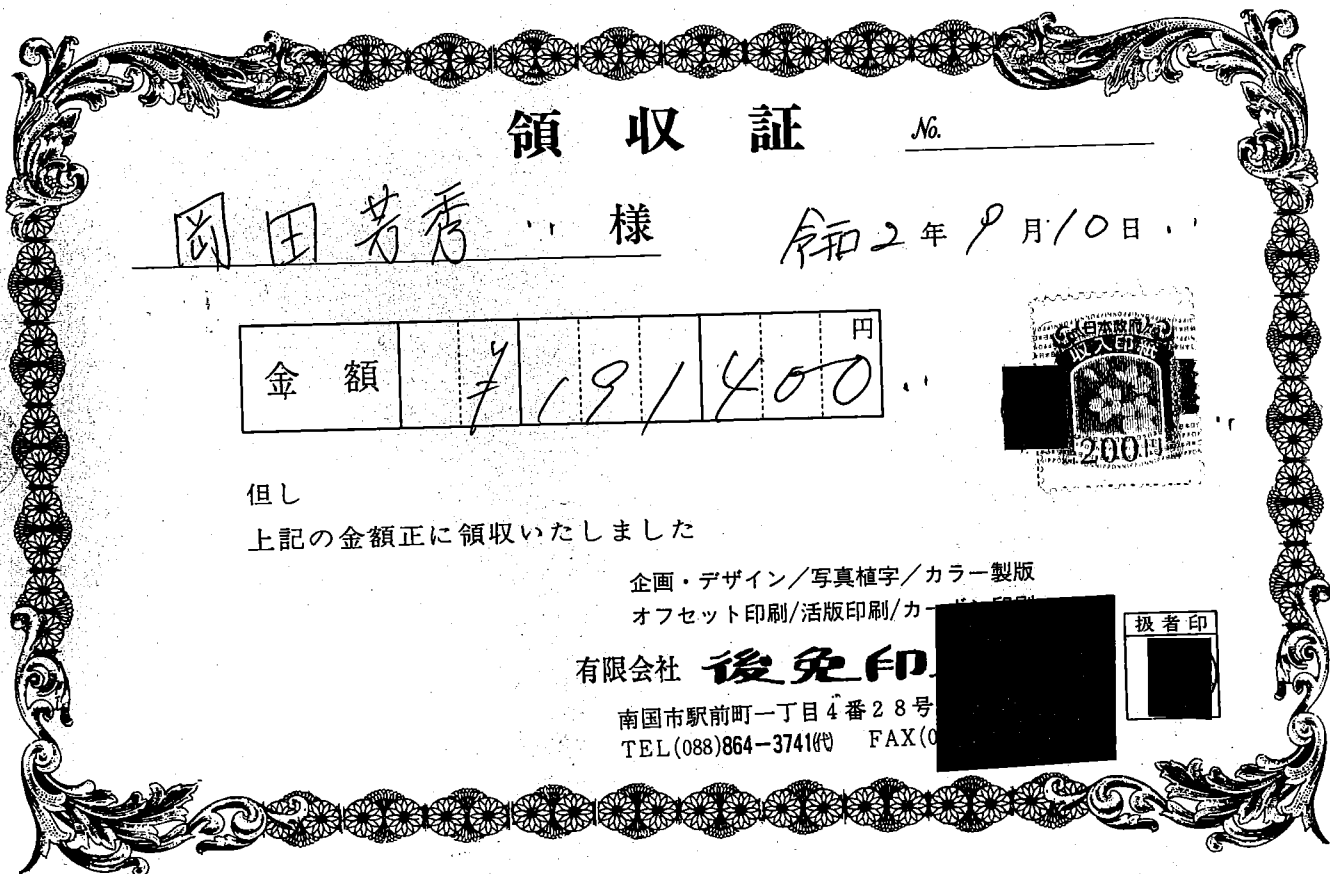 領収証 No.
岡田芳秀 様 令和2年9月10日
金額 ¥191400円
日本政府
収入印紙
200円
但し
上記の金額正に領収いたしました
企画・デザイン/写真植字/カラー製版
オフセット印刷/活版印刷/カー
有限会社 後免印
扱者印
南国市駅前町一丁目4番28号
TEL(088)864-3741㈹ FAX(0